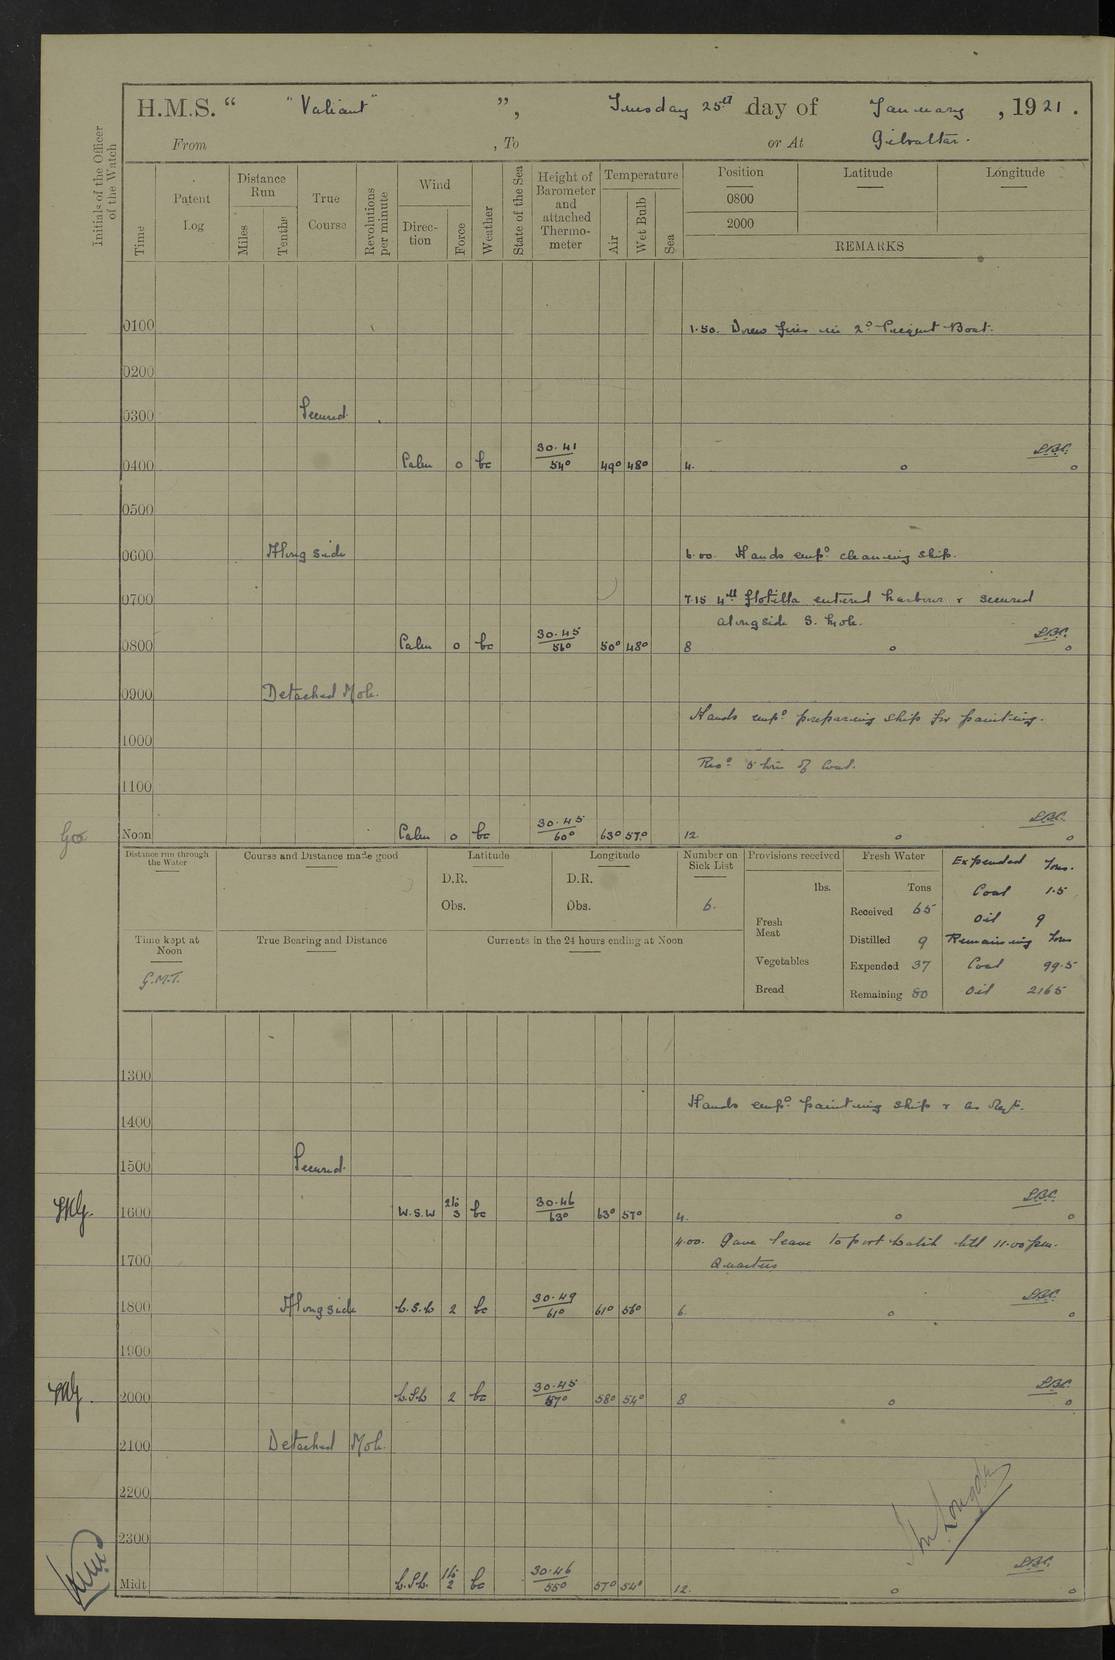 H.M.S. “ "Valiant" ”, Tuesday 25th day of January, 1921.
From , To or At Gibraltar.
Initials of the Officer of the Watch
Time
Patent Log
Distance Run
Miles
Tenths
True Course
Revolutions per minute
Wind
Direction
Force
Weather
State of the Sea
Height of Barometer and attached Thermometer
Temperature
Air
Wet Bulb
Sea
Position Latitude Longitude
0800
2000
REMARKS
0100 1.50. Drew fires in 2o Picquet Boat.
0200
0300 Secured
0400 Calm 0 bc 30.41 54° 49° 48° 4.
0500
0600 Alongside 6.00 Hands empd cleaning ship.
0700 7.15 4th flotilla entered harbour & secured
alongside S. Mole.
0800 Calm 0 bc 30.45 56° 50° 48° 8
0900 Detached Mole.
Hands empd preparing ship for painting.
1000
Recd 5 tons of Coal.
1100
Noon Calm 0 bc 30.45 60° 63° 57° 12
Distance run through the Water
Course and Distance made good
Latitude
D.R.
Obs.
Longitude
D.R.
Obs.
Number on Sick List
6.
Provisions received
lbs.
Fresh Meat
Vegetables
Bread
Fresh Water
Tons
Received 65
Distilled 9
Expended 37
Remaining 80
Expended Tons.
Coal 1.5
Oil 9
Remaining Tons
Coal 99.5
Oil 2165
Time kept at Noon
G.M.T.
True Bearing and Distance
Currents in the 24 hours ending at Noon
1300
Hands empd painting ship & as reqt.
1400
1500 Secured
1600 W.S.W 2 to 3 bc 30.46 63° 63° 57° 4.
4.00. Gave leave to port watch till 11.00 pm.
1700 Quarters
1800 Alongside W.S.W 2 bc 30.49 61° 61° 56° 6
1900
2000 W.S.W 2 bc 30.45 57° 58° 54° 8
2100 Detached Mole.
2200
2300
Midt. W.S.W. 1 to 2 bc 30.46 55° 57° 54° 12